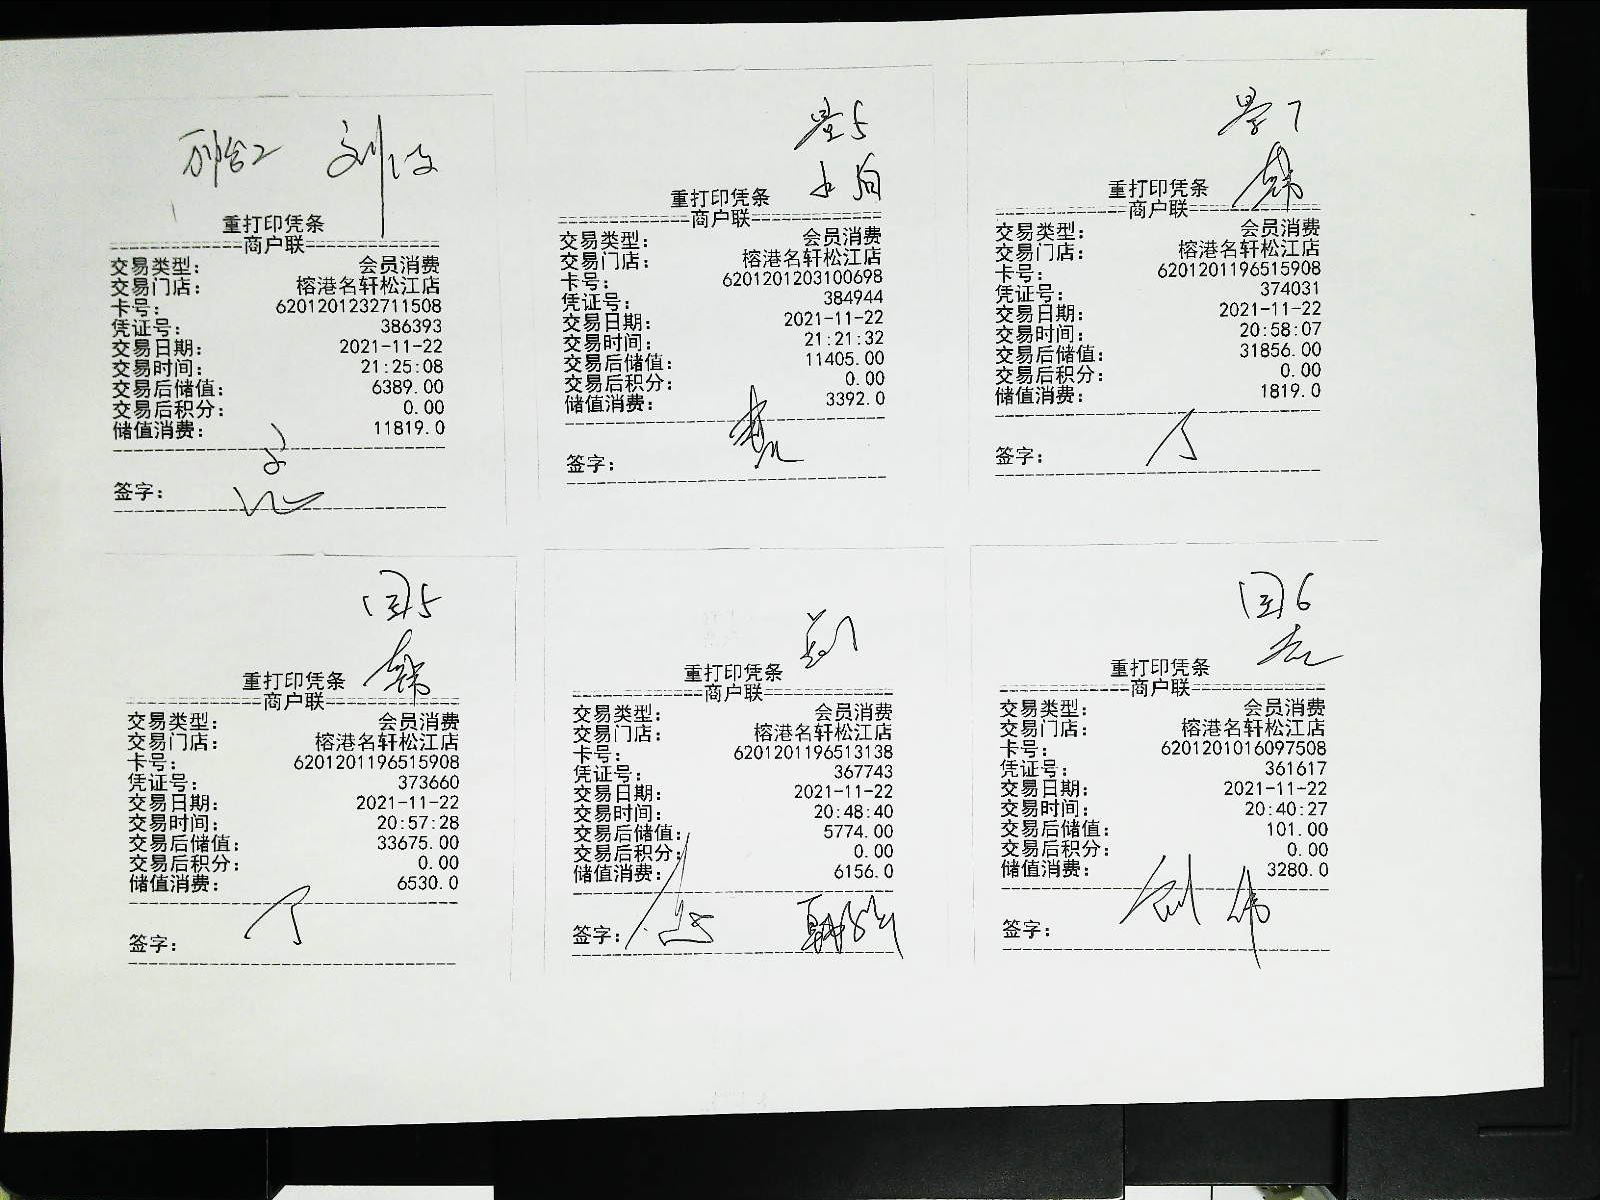 重打印凭条
商户联
交易类型： 会员消费
交易门店： 榕港名轩松江店
卡号： 6201201232711508
凭证号： 386393
交易日期： 2021-11-22
交易时间： 21:25:08
交易后储值： 6389.00
交易后积分： 0.00
储值消费： 11819.0
签字：
5
重打印凭条
商户联
交易类型： 会员消费
交易门店： 榕港名轩松江店
卡号： 6201201203100698
凭证号： 384944
交易日期： 2021-11-22
交易时间： 21:21:32
交易后储值： 11405.00
交易后积分： 0.00
储值消费： 3392.0
签字：
7
重打印凭条
商户联
交易类型： 会员消费
交易门店： 榕港名轩松江店
卡号： 6201201196515908
凭证号： 374031
交易日期： 2021-11-22
交易时间： 20:58:07
交易后储值： 31856.00
交易后积分： 0.00
储值消费： 1819.0
签字：
国5
重打印凭条
商户联
交易类型： 会员消费
交易门店： 榕港名轩松江店
卡号： 6201201196515908
凭证号： 373660
交易日期： 2021-11-22
交易时间： 20:57:28
交易后储值： 33675.00
交易后积分： 0.00
储值消费： 6530.0
签字：
重打印凭条
商户联
交易类型： 会员消费
交易门店： 榕港名轩松江店
卡号： 6201201196513138
凭证号： 367743
交易日期： 2021-11-22
交易时间： 20:48:40
交易后储值： 5774.00
交易后积分： 0.00
储值消费： 6156.0
签字：
国6
重打印凭条
商户联
交易类型： 会员消费
交易门店： 榕港名轩松江店
卡号： 6201201016097508
凭证号： 361617
交易日期： 2021-11-22
交易时间： 20:40:27
交易后储值： 101.00
交易后积分： 0.00
储值消费： 3280.0
签字：